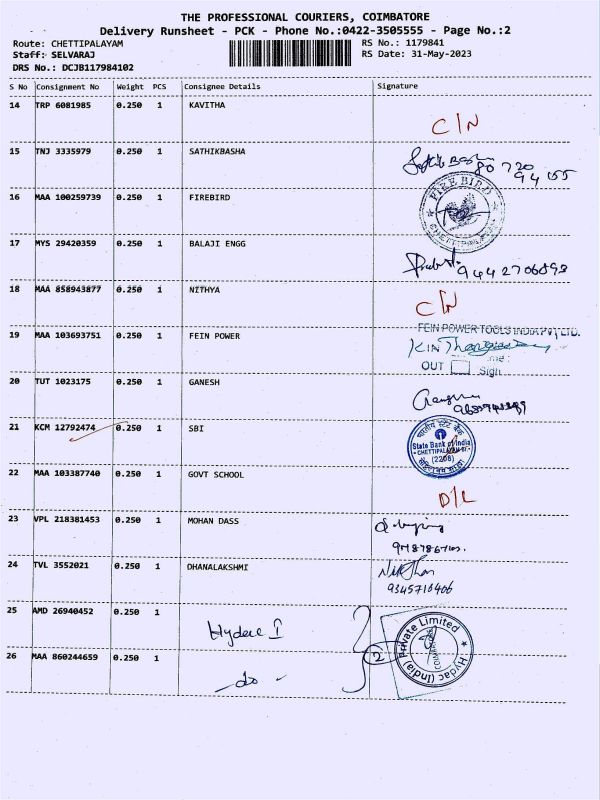 THE PROFESSIONAL COURIERS, COIMBATORE
Delivery Runsheet - PCK - Phone No.:0422-3505555 - Page No.:2
Route: CHETTIPALAYAM RS No.: 1179841
Staff: SELVARAJ RS Date: 31-May-2023
DRS No.: DCJB117984102
S No Consignment No Weight PCS Consignee Details Signature
14 TRP 6081985 0.250 1 KAVITHA
C/N
15 TNJ 3335979 0.250 1 SATHIKBASHA
80 720
94 155
16 MAA 100259739 0.250 1 FIREBIRD
FIRE BIRD
CHETTIPALAYAM
17 MYS 29420359 0.250 1 BALAJI ENGG
18 MAA 858943877 0.250 1 NITHYA
C/N
19 MAA 103693751 0.250 1 FEIN POWER
FEIN POWER TOOLS INDIA PVT LTD.
OUT Sign
20 TUT 1023175 0.250 1 GANESH
21 KCM 12792474 0.250 1 SBI
भारतीय स्टेट बैंक
State Bank of India
CHETTIPALAYAM
22 MAA 103387740 0.250 1 GOVT SCHOOL
D/L
23 VPL 218381453 0.250 1 MOHAN DASS
24 TVL 3552021 0.250 1 DHANALAKSHMI
9345710406
25 AMD 26940452 0.250 1
26 MAA 860244659 0.250 1
do
2
Hydac (India) Private Limited
COIMBATORE